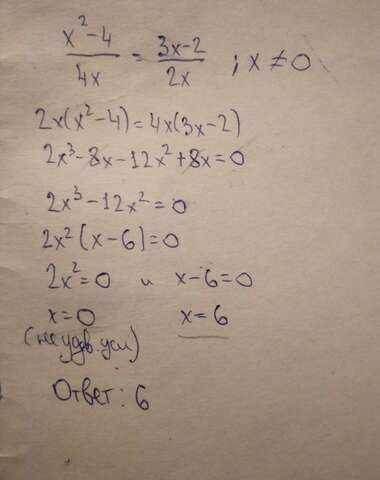 (x²-4)/(4x) = (3x-2)/(2x) ; x ≠ 0
2x(x²-4)=4x(3x-2)
2x³-8x-12x²+8x=0
2x³-12x²=0
2x²(x-6)=0
2x²=0 и x-6=0
x=0 x=6
(не удв. усл)
Ответ: 6